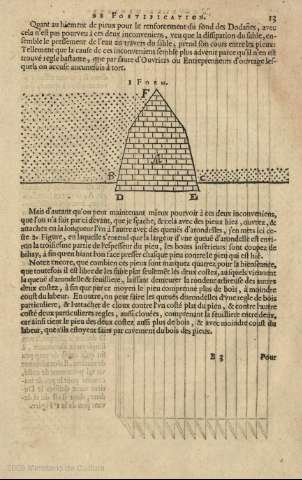 DE FORTIFICATION. 13
Quant au hiement de pieux pour le renforcement du fond des Dodanes, avec
cela n'est pas pourveu à ces deux inconveniens, veu que la dissipation du sable, en-
semble le pressement de l'eau au travers du sable, prend son cours entre les pieux:
Tellement que la cause de ces inconveniens semble plus advenir parce qu'il n'en est
trouvé regle bastante, que par faute d'Ouvriers ou Entrepreneurs d'ouvrage les-
quels on accuse aucunefois à tort.
1 FORM.
F
A
B C
D E
Mais d'autant qu'on peut maintenant mieux pourveoir à ces deux inconveniens,
que l'on n'a fait par ci devant, que je sçache, & cela avec des pieux hiez, ouvrez, &
attachez en la longueur l'un à l'autre avec des queuës d'arondelles, j'en mets ici
ceste 2 Figure, en laquelle s'entend que la largeur d'une queuë d'arondelle est envi-
ron la troisiesme partie de l'espesseur du pieu, les bouts inferieurs sont coupez de
bihay, à fin qu'en hiant l'on face presser chasque pieu contre le pieu qui est hié.
Notez encore, que combien ces pieux sont marquez quarrez, pour la bienseance,
que toutefois il est liber de les faire plat seulement les deux costez, ausquels viennent
la queuë d'arondelle & feuilleure, laissant demeurer la rondeur arbreuse des autres
deux costez, à fin que par ce moyen le pieu comprenne plus de bois, à moindre
coust du labeur. En outre, on peut faire les queuës d'arondelles d'une regle de bois
particuliere, & l'attacher de cloux contre l'un costé plat du pieu, & contre l'autre
costé deux particulieres regles, aussi clouées, comprenant la feuilleure entre deux,
car ainsi tient le pieu des deux costez aussi plus de bois, & avec moindre coust du
labeur, que s'ils estoyent faits par cavement du bois des pieux.
B 3 Pour
2009 Ministerio de Cultura